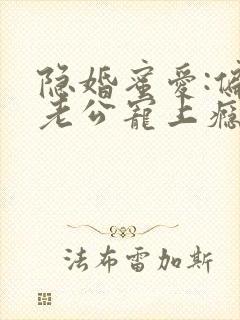 隐婚蜜爱:偏
老公宠上瘾
法布雷加斯